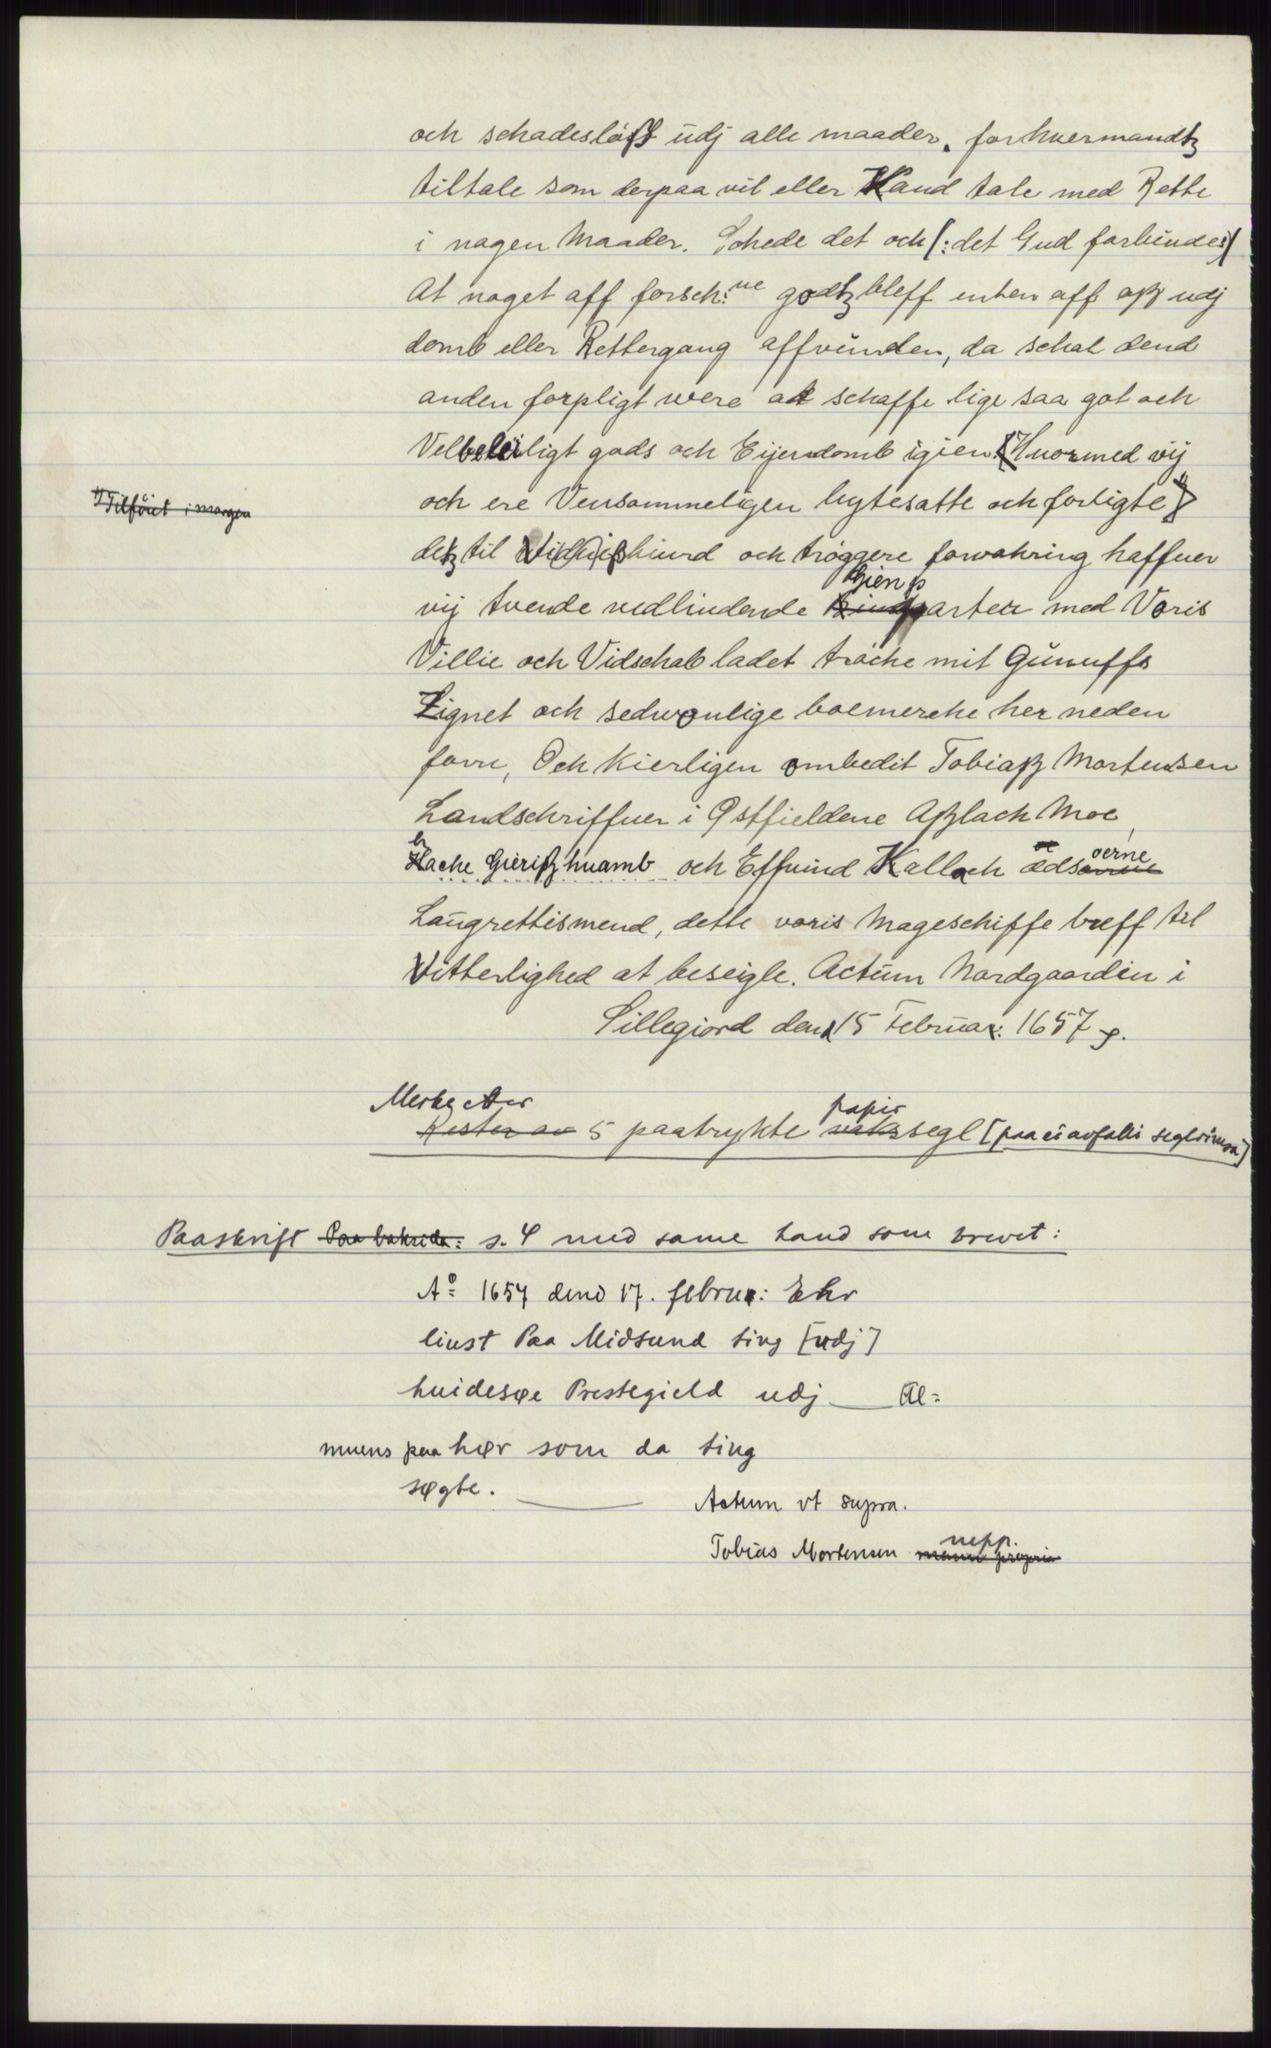 och schadesløsß udj alle maader, for huermandtz
tiltale som derpaa vil eller Kand tale med Rette
i nogen Maader. Schede det och (: det Gud forbinde:)
At noget aff forsch:ne godtz bleff enten aff oß udj
domb eller Rettergang affvunden, da schal dend
anden forpligt were at schaffe lige saa got och
Velbeleiligt gods och Eijendomb igien. [Huormed vij
och ere Vensammeligen bytesatte och forligte]1)
1) Tilføiet i margen
detz til Vidnisbiurd och trøggere forvahring haffuer
vij tvende vedliudende Gienparter med Voris
Villie och Vidschab ladet trøche mit Gunuffs
Zignet och sedwonlige boemerche her neden
forre, Och Kierligen ombedit Tobiaß Mortensen
Landschriffuer i Østfieldene Aßlach Moe,
Hache Gieriß huamb och Effuind Kallach ædsoerne
Laugrettismend, dette voris Mageschiffe breff til
Vitterlighed at beseigle. Actum Nordgaarden i
Sillegiord dend 15 Februar: 1657 p.
Merke etter
Rester av 5 paatrykte papir vakssegl [paa ei avfalli seglrimsa]
Paaskrift Paa baksida: s. 4 med same hand som brevet:
Ao: 1657 dend 17. februa: Ehr
liust Paa Midsund ting [udj]
huidesøe Prestegield udj ___ Al=
muens paa hør som da ting
søgte. ___
Actum vt supra.
Tobias Mortensen mepp.
manu propria